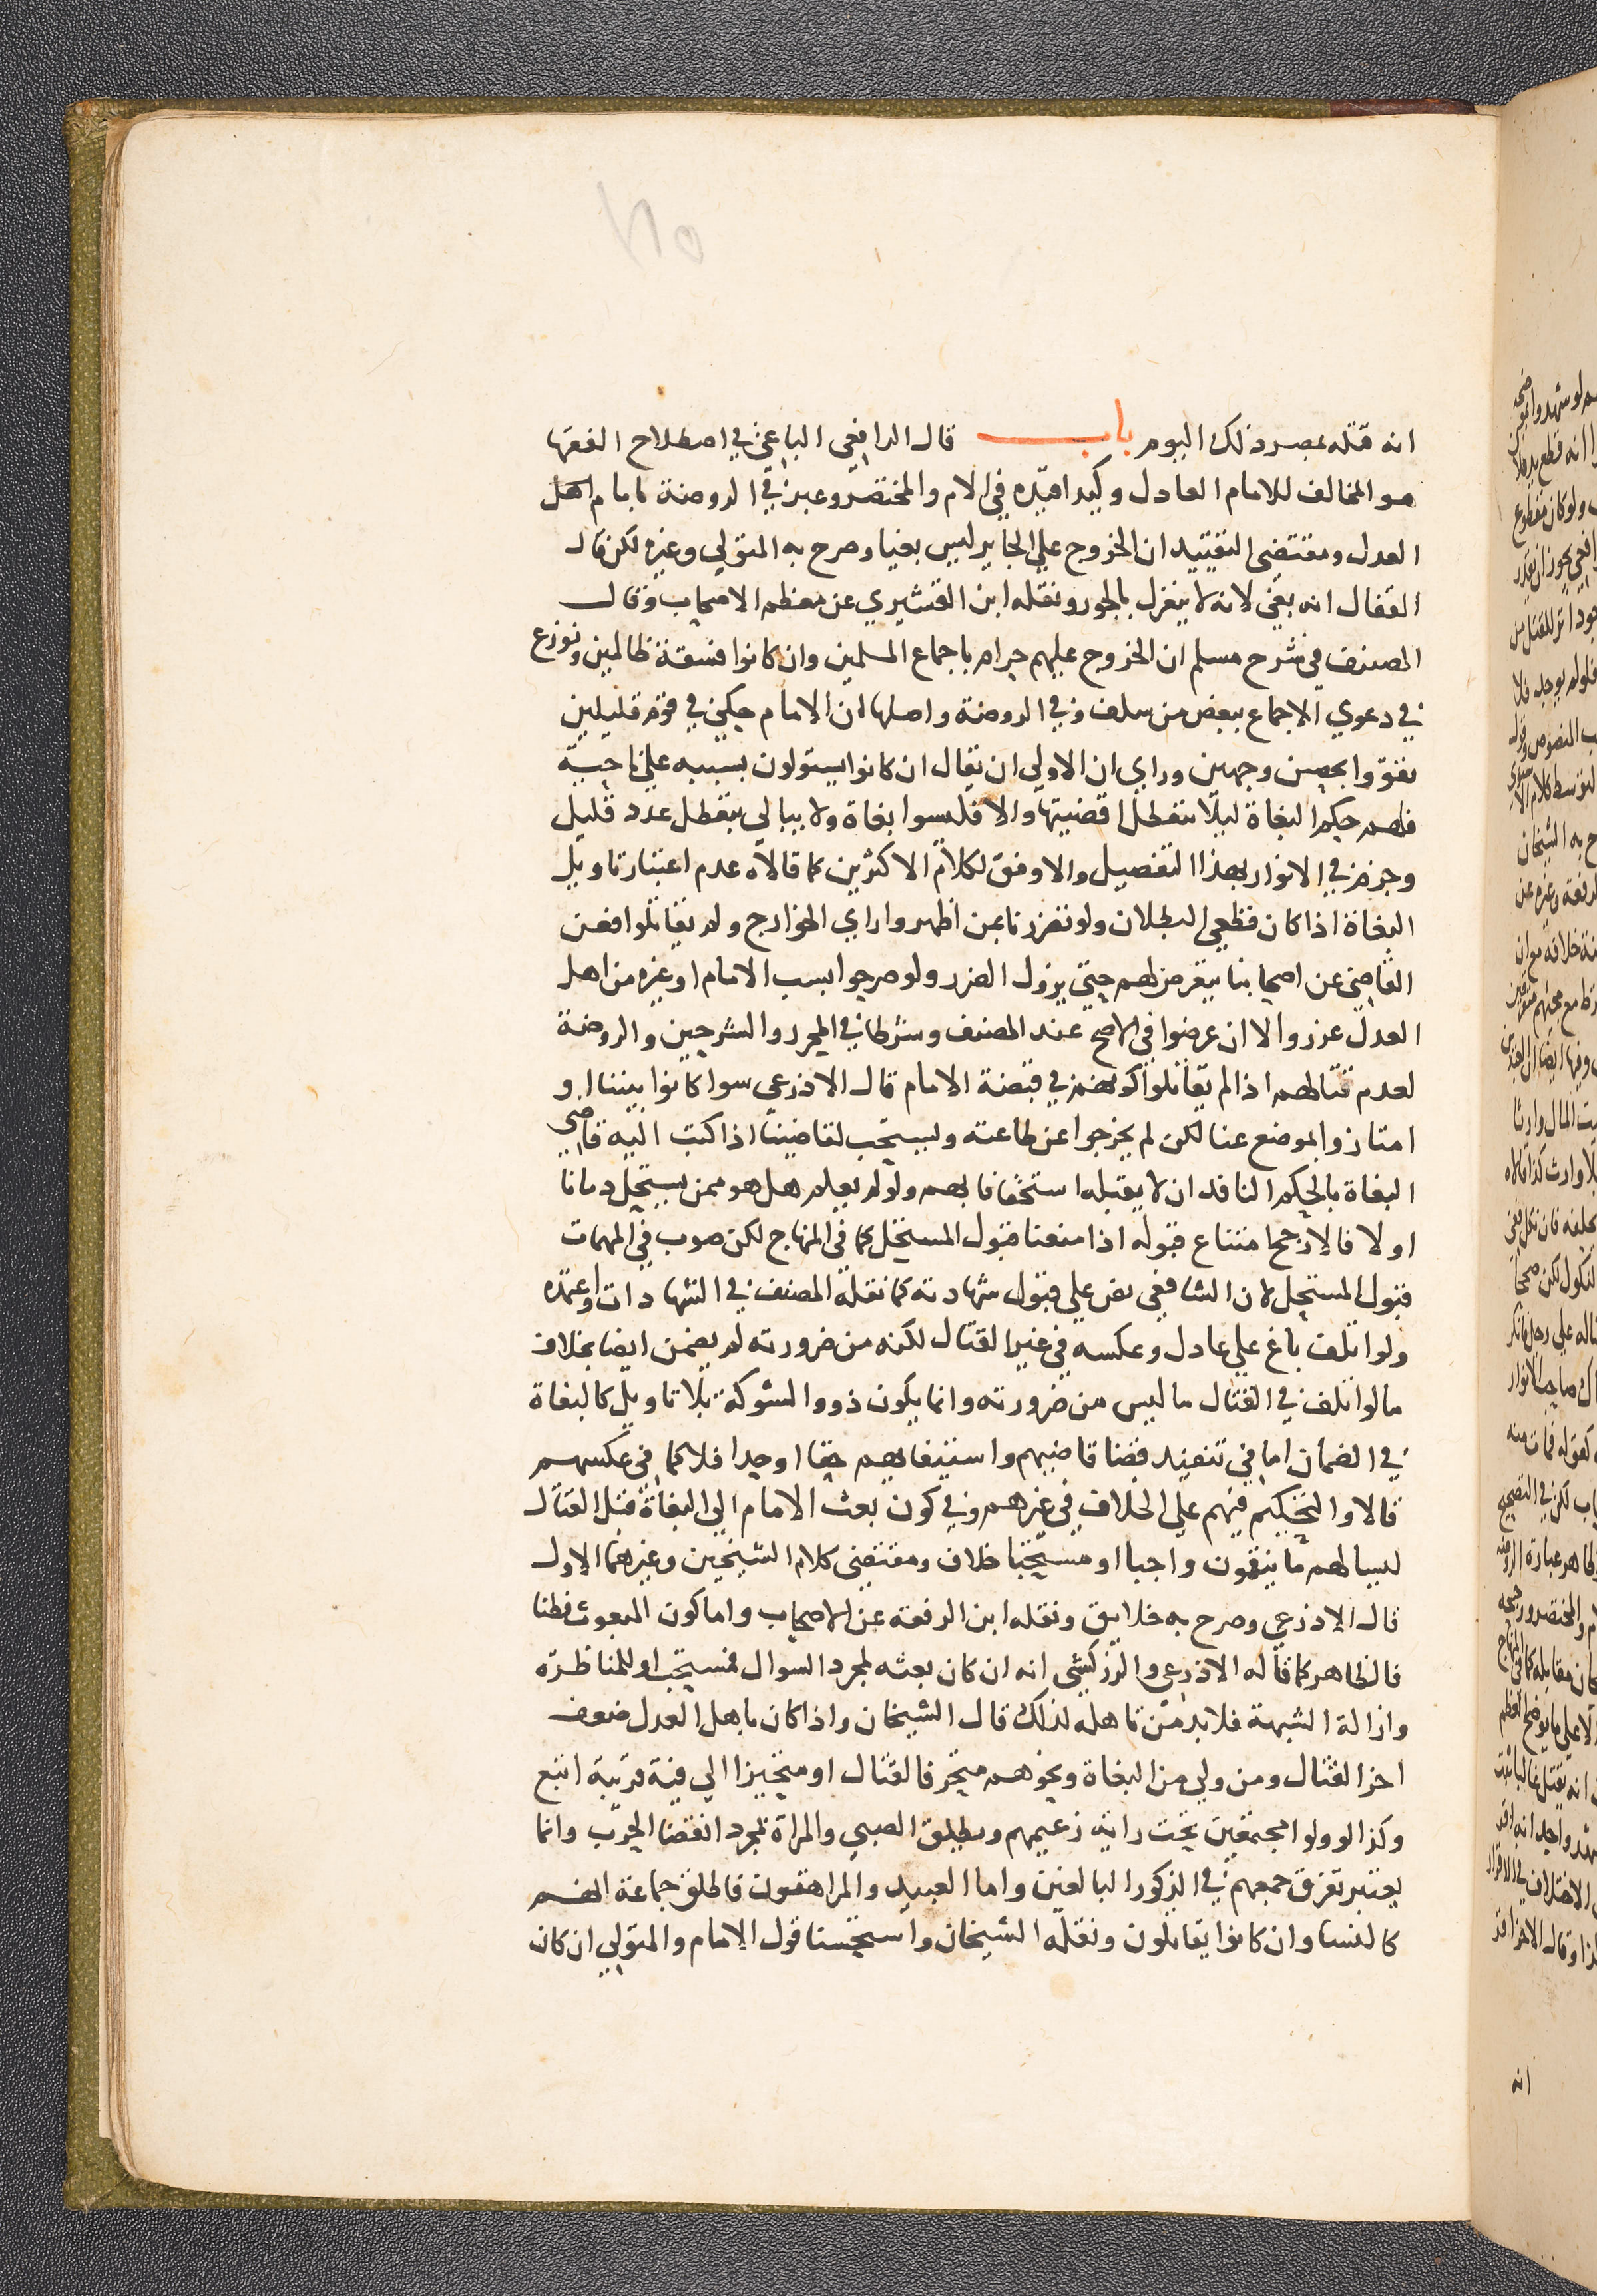 انه قتله بمصر ذلك اليوم باب قال الرافعي الباغي في اصطلاح الفقها
هو المخالف للامام العادل وكذا قيده في الام والمختصر وعبر في الروضة بامام اهل
العدل ومقتضى التقييد ان الخروج علي الجاير ليس بغيا وصرح به المتولي وغيره لكن قال
القفال انه بغي لانه لا ينعزل بالجور ونقله ابن القشيري عن معظم الاصحاب وقال
المصنف في شرح مسلم ان الخروج عليهم حرام باجماع المسلمين وان كانوا فسقة ظالمين ونوزع
في دعوي الاجماع ببعض من سلف وفي الروضة واصلها ان الامام حكي في قوم قليلين
تقووا بحصن وجهين وراي ان الاولي ان يقال ان كانوا يستولون بسببه علي ناحية
فلهم حكم البغاة ليلا تتعطل اقضيتها والا فليسوا بغاة ولا يبالي بتعطل عدد قليل
وجزم في الانوار بهذا التفصيل والاوفق لكلام الاكثرين كما قالاه عدم اعتبار تاويل
البغاة اذا كان قطعي البطلان ولو تضررنا بمن اظهروا راي الخوارج ولم يقاتلوا فعن
القاضي عن اصحابنا يتعرض لهم حتي يزول الضرر ولو صرحوا بسب الامام او غيره من اهل
العدل عزروا لا ان عرضوا في الاصح عند المصنف وشرطا في المحرر والشرحين والروضة
لعدم قتالهم اذا لم يقاتلوا كونهم في قبضة الامام قال الاذرعي سوا كانوا بيننا او
امتازوا بموضع عنا لكن لم يخرجوا عن طاعته ويستحب لقاضينا اذا كتب اليه قاضي
البغاة بالحكم النافد ان لا يقبله استخفافا بهم ولو لم يعلم هل هو ممن يستحل دمانا
او لا فالارجح امتناع قبوله اذا منعنا قبول المستحل كما في المنهاج لكن صوب في المهمات
قبول المستحل لان الشافعي نص علي قبول شهادته كما نقله المصنف في الشهادات واعتمده
ولو اتلف باغ علي عادل وعكسه في غير القتال لكنه من ضرورته لم يضمن ايضا بخلاف
ما لو اتلف في القتال ما ليس من ضرورته وانما يكون ذووا الشوكة بلا تاويل كالبغاة
في الضمان اما في تنفيذ قضا قاضيهم واستيفايهم حقا او حدا فلا كما في عكسهم
قالا والتحكيم فيهم علي الخلاف في غيرهم وفي كون بعث الامام الي البغاة قبل القتال
ليسالهم ما ينقمون واجبا او مستحبا خلاف ومقتضي كلام الشيخين وغيرهما الاول
قال الاذرعي وصرح به خلايق ونقله ابن الرفعة عن الاصحاب واما كون المبعوث فطنا
فالظاهر كما قاله الاذرعي والزركشي انه ان كان بعثه لمجرد السوال فمستحب او للمناظرة
وازالة الشبهة فلا بد من تاهله لذلك قال الشيخان واذا كان باهل العدل ضعف
اخر القتال ومن ولي من البغاة ونحوهم متحرفا لقتال او متحيزا الي فية قريبة اتبع
وكذا لو ولوا مجتمعين تحت راية زعيمهم ويطلق الصبي والمراة بمجرد انقضا الحرب وانما
يعتبر تفرق جمعهم في الذكور البالغين واما العبيد والمراهقون فاطلق جماعة انهم
كالنسا وان كانوا يقاتلون ونقله الشيخان واستحسنا قول الامام والمتولي ان كان
انه